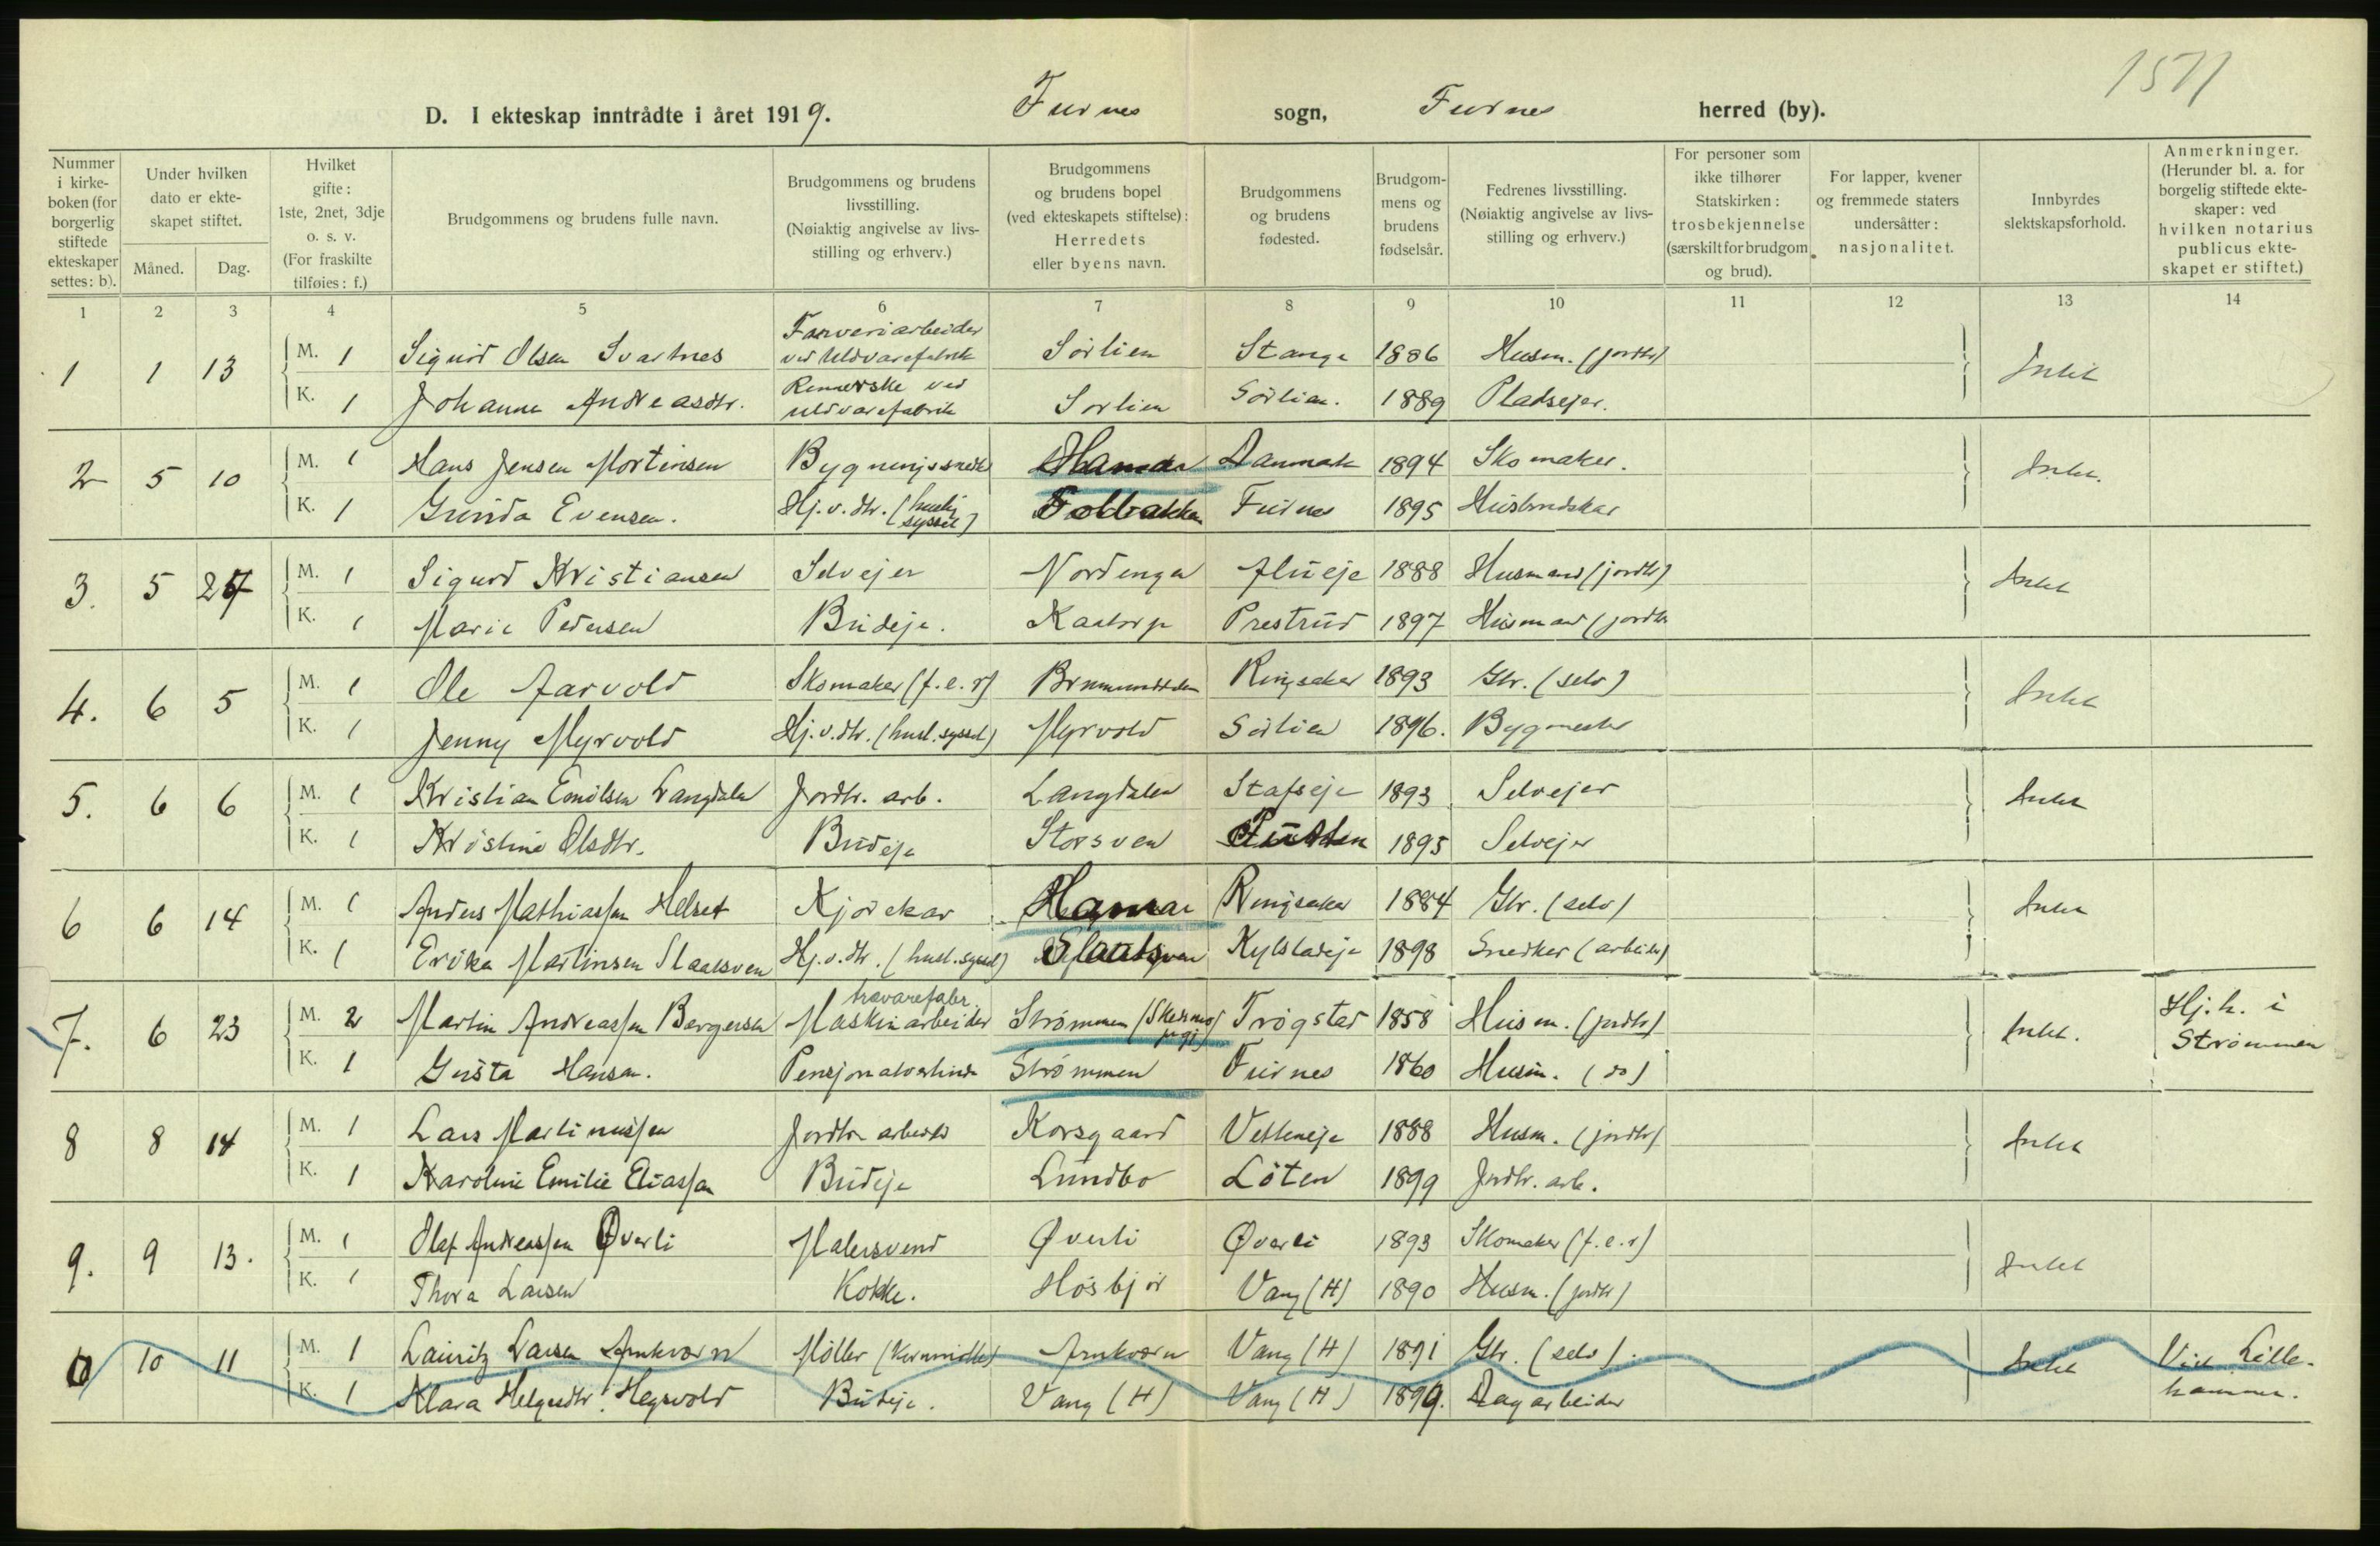 1571
D. I ekteskap inntrådte i året 1919. Furnes sogn, Furnes herred (by).
Nummer i kirke-boken (for borgerlig stiftede ekteskaper settes: b).
Under hvilken dato er ekte-skapet stiftet.
Måned. Dag.
Hvilket gifte: 1ste, 2net, 3dje o. s. v. (For fraskilte tilføies: f.)
Brudgommens og brudens fulle navn.
Brudgommens og brudens livsstilling. (Nøiaktig angivelse av livs-stilling og erhverv.)
Brudgommens og brudens bopel (ved ekteskapets stiftelse): Herredets eller byens navn.
Brudgommens og brudens fødested.
Brudgom-mens og brudens fødselsår.
Fedrenes livsstilling. (Nøiaktig angivelse av livs-stilling og erhverv.)
For personer som ikke tilhører Statskirken: trosbekjennelse (særskilt for brudgom og brud).
For lapper, kvener og fremmede staters undersåtter: nasjonalitet.
Innbyrdes slektskapsforhold.
Anmerkninger. (Herunder bl. a. for borgelig stiftede ekte-skaper: ved hvilken notarius publicus ekte-skapet er stiftet.)
1 2 3 4 5 6 7 8 9 10 11 12 13 14
1 1 13 M. 1 Sigurd Olsen Svartnes Farveriarbeider ved Uldvarefabrik Sörlien Stange 1886 Husm. (jordbr) Intet
K. 1 Johanne Andreasdtr. ved uldvarefabrik Sörlien Sörlien. 1889 Pladsejer.
2 5 10 M. 1 Hans Jensen Mortensen Bygningssnedk Hamar Danmark 1894 Skomaker. Intet.
K. 1 Gunda Evensen. Hj. v. dtr. (huslig syssel) Furnes 1895 Husbondskar
3. 5 M. 1 Sigurd Kristiansen Selvejer Nordengen 1888 Husmand (jordbr) Intet
K. 1 Marie Pedersen Budeje. Kaatorp Prestrud 1897 Husmand (jordbr
4. 6 5 M. 1 Ole Aarvold Skomaker (f. e. r) Brummunddalen Ringsaker 1893 Gbr. (selv) Intet
K. 1 Jenny Myrvold Hj. v. dtr. (husl. syssel) Myrvold Sörlien 1896. Bygmester
5. 6 6 M. 1 Kristian Emilsen Langdalen Jordbr. arb. Langdalen Stafseje 1893 Selvejer Intet
K. 1 Kristine Olsdtr. Budeje Storsven 1895 Selvejer
6 6 14 M. 1 Anders Mathiassen Helset Kjörekar Hamar Ringsaker 1884 Gbr. (selv) Intet
K. 1 Erika Martinsen Slaatsven Hj. v. dtr. (husl. syssel) Slaatsven Kylstadeje 1898 Snedker (arbeider)
7. 6 23 M. 2 Martin Andreassen Bergersen trævarefabr. Maskinarbeider Strömmen (Skedsmo pgj) Trögstad 1858 Husm. (jordbr) Intet. Hj. h. i Strömmen
K. 1 Gusta Hansen. Pensjonatvertinde Strömmen Furnes 1860 Husm. (do)
8 8 14 M. 1 Lars Martinussen Jordbr arbeider Korsgaard Vetteneje 1888 Husm. (jordbr) Intet
K. 1 Karoline Emilie Eliassen Budeje Lundbo Löten 1899 Jordbr. arb.
9. 9 13. M. 1 Olaf Andreassen Øverli Malersvend Øverli Øverli 1893 Skomaker (f. e. r) Intet
K. 1 Thora Larsen Kokke. Hösbjör Vang (H) 1890 Husm. (jordbr)
10 10 11 M. 1 Lauritz Larsen Arnkværn Möller Arnkværn Vang (H) 1891 Gbr. (selv). Intet Vid. Lille-hammer.
K. 1 Klara Helgesdtr. Hegsvold Budeje. Vang (H) Vang (H) 1899. Dagarbeider